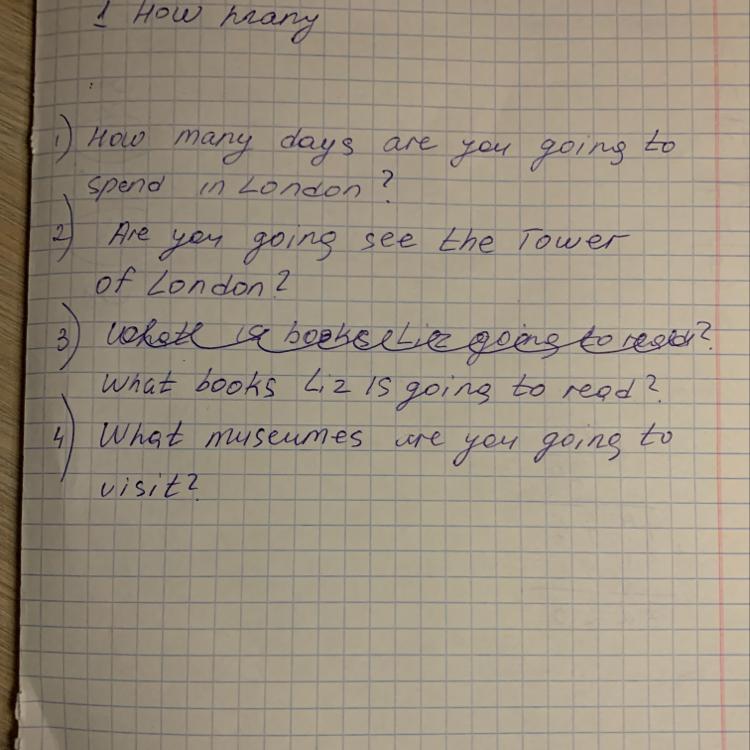 1 How many
1) How many days are you going to
spend in London?
2) Are you going see the Tower
of London?
3) What is books Liz going to read?
What books Liz is going to read?
4) What museumes are you going to
visit?